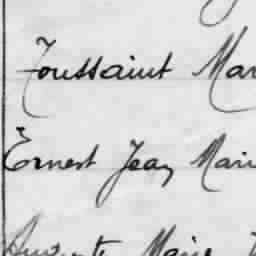 Toussaint Mar
Ernest Jean Mari
Auguste Marie